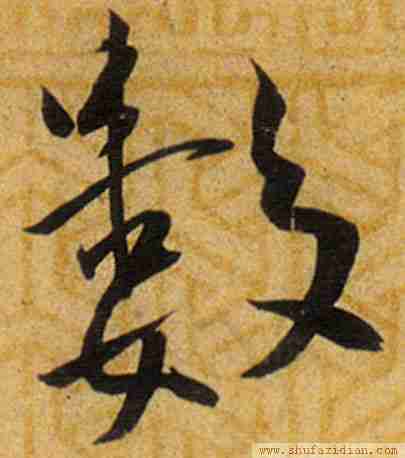 數
www.shufazidian.com